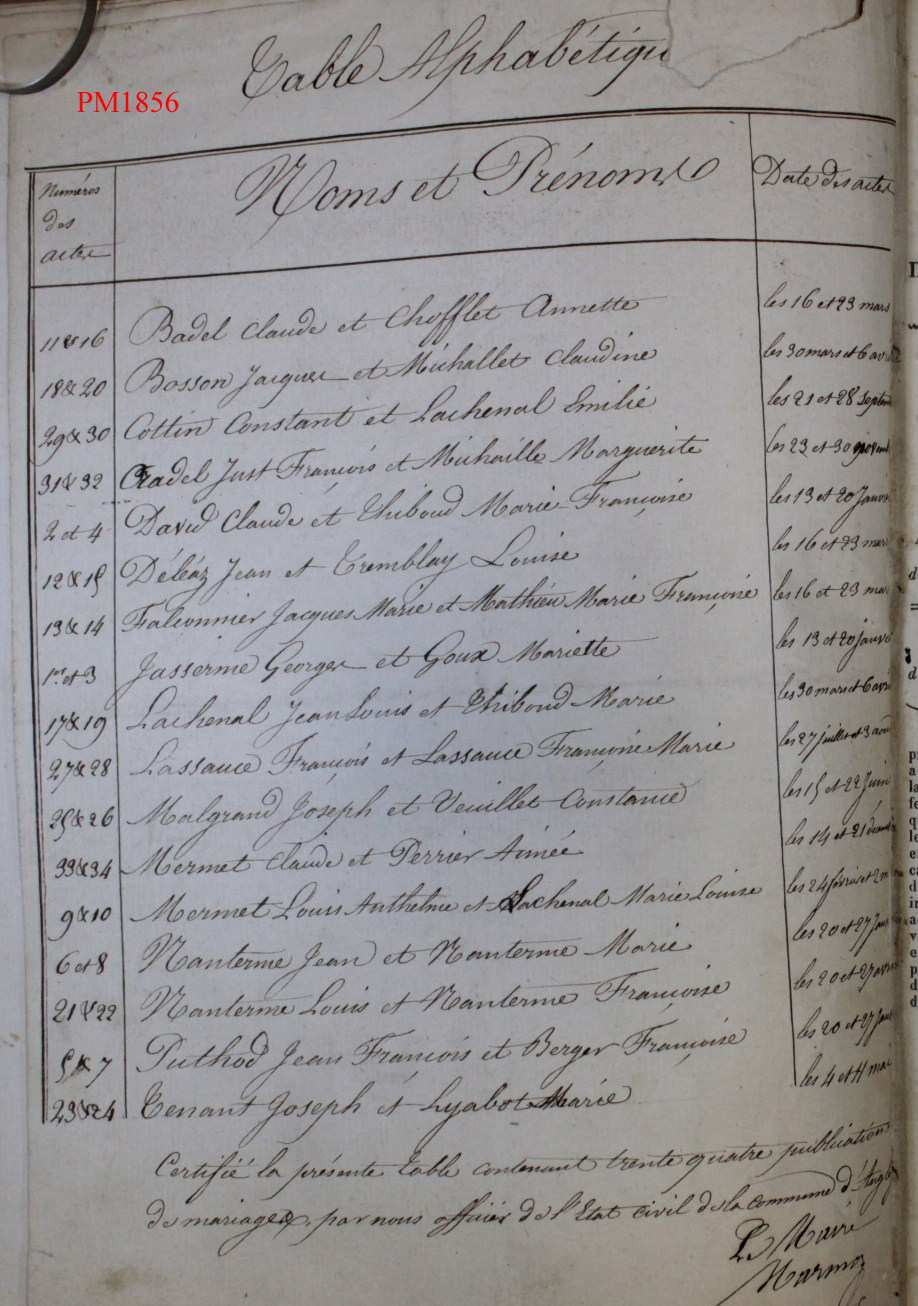 Table Alphabétiqu
PM1856
Numéros des actes Noms et Prénoms Date des actes
11 & 16 Badel Claude et Chofflet Annette les 16 et 23 mars
18 & 20 Bosson Jacques et Michallet Claudine les 30 mars et 6 avri
29 & 30 Cottin Constant et Lachenal Emilie les 21 et 28 septem
31 & 32 Cradel Just François et Michaille Marguerite les 23 et 30 novemb
2 et 4 David Claude et Thiboud Marie Françoise les 13 et 20 Janvie
12 & 15 Déléaz Jean et Tremblay Louise les 16 et 23 mar
13 & 14 Falconnier Jacques Marie et Mathieu Marie Françoise les 16 et 23 mar
1er et 3 Jasserme Georges et Goux Mariette les 13 et 20 janvie
17 & 19 Lachenal Jean Louis et Thiboud Marie les 30 mars et 6 avri
27 & 28 Lassauce François et Lassauce Françoise Marie les 27 juillet et 3 août
25 & 26 Malgrand Joseph et Veuillet Constance les 15 et 22 Juin
33 & 34 Mermet Claude et Perrier Aimée les 14 et 21 décemb
9 & 10 Mermet Louis Anthelme et Lachenal Marie Louise les 24 février et 2 m
6 et 8 Nanterme Jean et Nanterme Marie les 20 et 27 Janv
21 & 22 Nanterme Louis et Nanterme Françoise les 20 et 27 avri
5 & 7 Puthod Jean François et Berger Françoise les 20 et 27 Janv
23 & 24 Tenant Joseph et Lyabot Marie les 4 et 11 mai
Certifié la présente table contenant trente quatre publications
de mariages, par nous officier de l'Etat civil de la commune d'
Le Maire